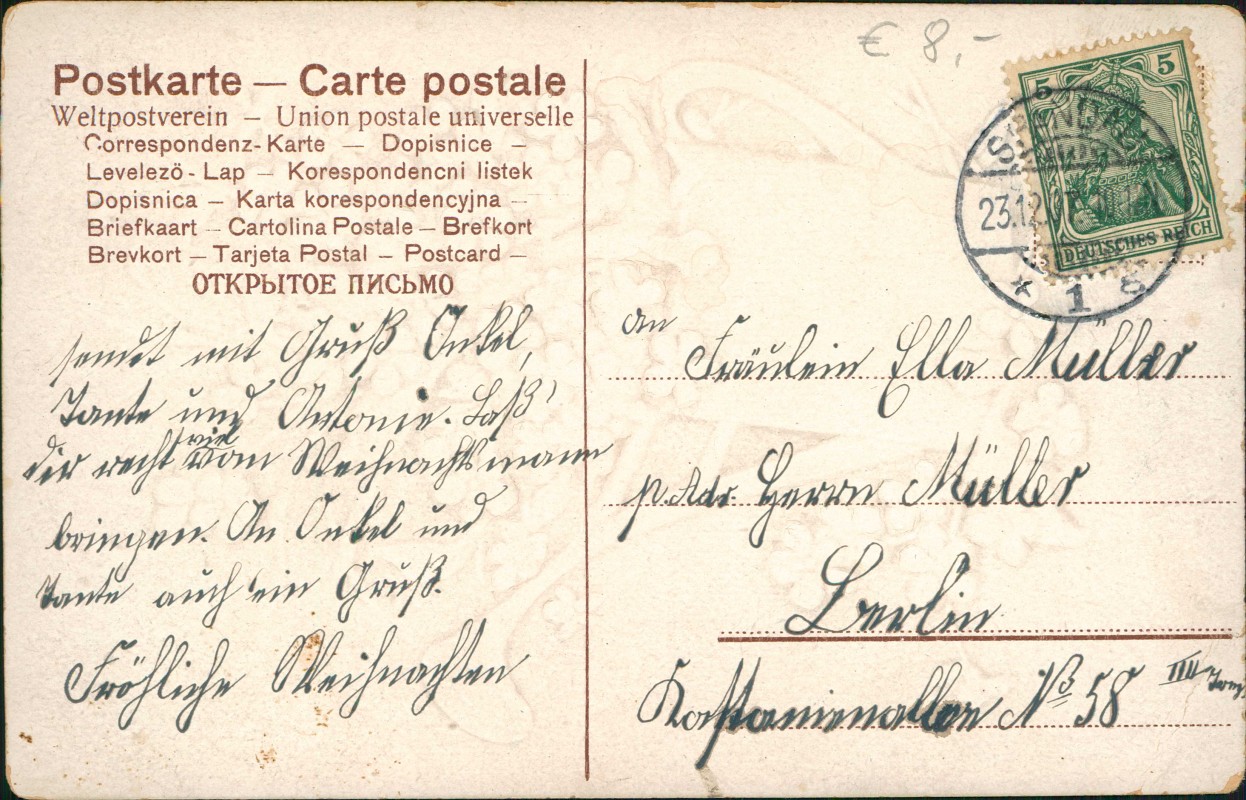 € 8,-
Postkarte — Carte postale
Weltpostverein — Union postale universelle
Correspondenz-Karte — Dopisnice —
Levelezö-Lap — Korespondencni listek
Dopisnica — Karta korespondencyjna —
Briefkaart — Cartolina Postale — Brefkort
Brevkort — Tarjeta Postal — Postcard —
ОТКРЫТОЕ ПИСЬМО
sendet mit Gruß Onkel,
Tante und Antonie. Laß'
dir recht viel vom Weihnachtsmann
bringen. An Onkel und
Tante auch ein Gruß.
Fröhliche Weihnachten
5 5
STENDAL
23.12.
DEUTSCHES REICH
* 1 g
An
Fräulein Ella Müller
p. Adr. Herrn Müller
Berlin
Kastanienallee No 58 III